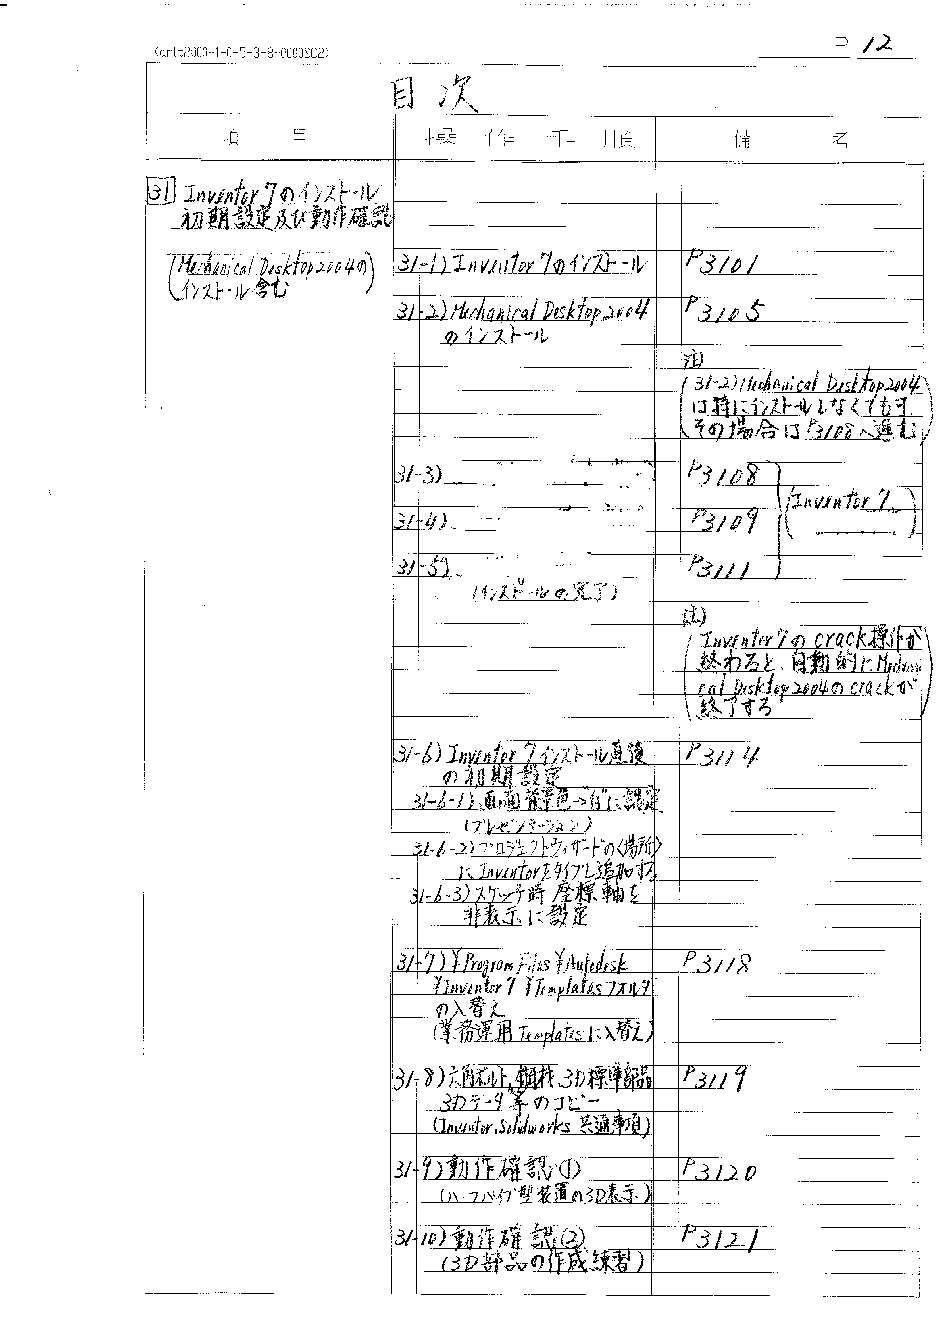 P 12
目次
項 目 操 作 手 順 備 考
31 Inventor 7のインストール
初期設定及び動作確認
(Mechanical Desktop2004の
インストール含む)
31-1) Inventor 7のインストール P3101
31-2) Mechanical Desktop2004 P3105
のインストール
注)
(31-2) Mechanical Desktop2004
は特にインストールしなくても可
その場合はP3108へ進む)
31-3) P3108
(Inventor 7
31-4) P3109
31-5) P3111
(インストールの完了)
注)
(Inventor7のcrack操作が
終わると、自動的にMechani
cal Desktop2004のcrackが
終了する)
31-6) Inventor 7インストール直後 P3114
の初期設定
31-6-1) 画面背景色→白に設定
(プレゼンテーション)
31-6-2) プロジェクトウィザードの<場所>
にInventorをタイプし追加する
31-6-3) スケッチ時 座標軸を
非表示に設定
31-7) ¥Program Files ¥Autodesk P3118
¥Inventor7 ¥Templatesフォルダ
の入替え
(業務運用Templatesに入替え)
31-8) 六角ボルト、鋼材、3D標準部品 P3119
3Dデータ等のコピー
(Inventor、Solidworks 共通事項)
31-9) 動作確認(1) P3120
(ハーフパイプ型装置の3D表示)
31-10) 動作確認(2) P3121
(3D部品の作成練習)